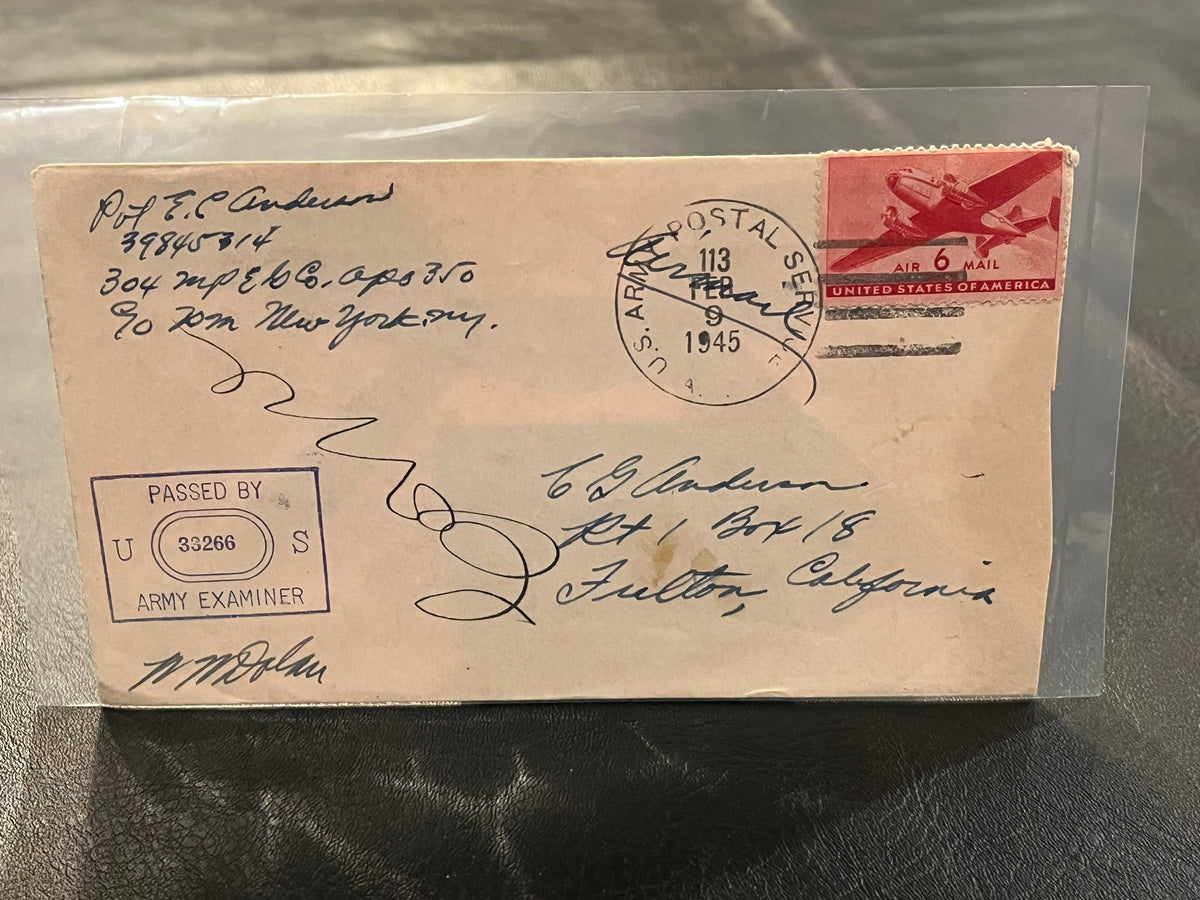 Pvt E. C Anderson
39845314
304 MPEG Co. apo 350
c/o P.M. New York. N.Y.
U.S. ARMY POSTAL SERVICE
113
FEB
9
1945
A.
Airmail
AIR 6 MAIL
UNITED STATES OF AMERICA
C G Anderson
Rt 1 Box 18
Fulton, California
PASSED BY
U 33266 S
ARMY EXAMINER
W M Dolan